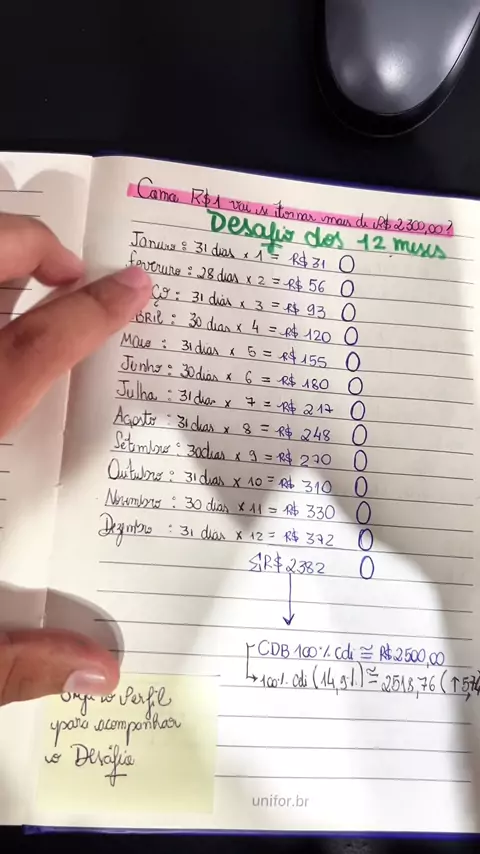 Como R$1 vai se tornar mais de R$2.300,00?
Desafio dos 12 meses
Janeiro : 31 dias x 1 = R$31
fevereiro : 28 dias x 2 = R$ 56
ço : 31 dias x 3 = R$ 93
BRIL : 30 dias x 4 = R$ 120
Maio : 31 dias x 5 = R$ 155
Junho : 30 dias x 6 = R$ 180
Julho : 31 dias x 7 = R$ 217
Agosto : 31 dias x 8 = R$ 248
Setembro : 30 dias x 9 = R$ 270
Outubro : 31 dias x 10 = R$ 310
Novembro : 30 dias x 11 = R$ 330
Dezembro : 31 dias x 12 = R$ 372
Σ R$ 2382
CDB 100% cdi ≅ R$2500,00
100% cdi (14,9%) ≅ 2518,76 (↑5,74
o Perfil
para acompanhar
o Desafio
unifor.br